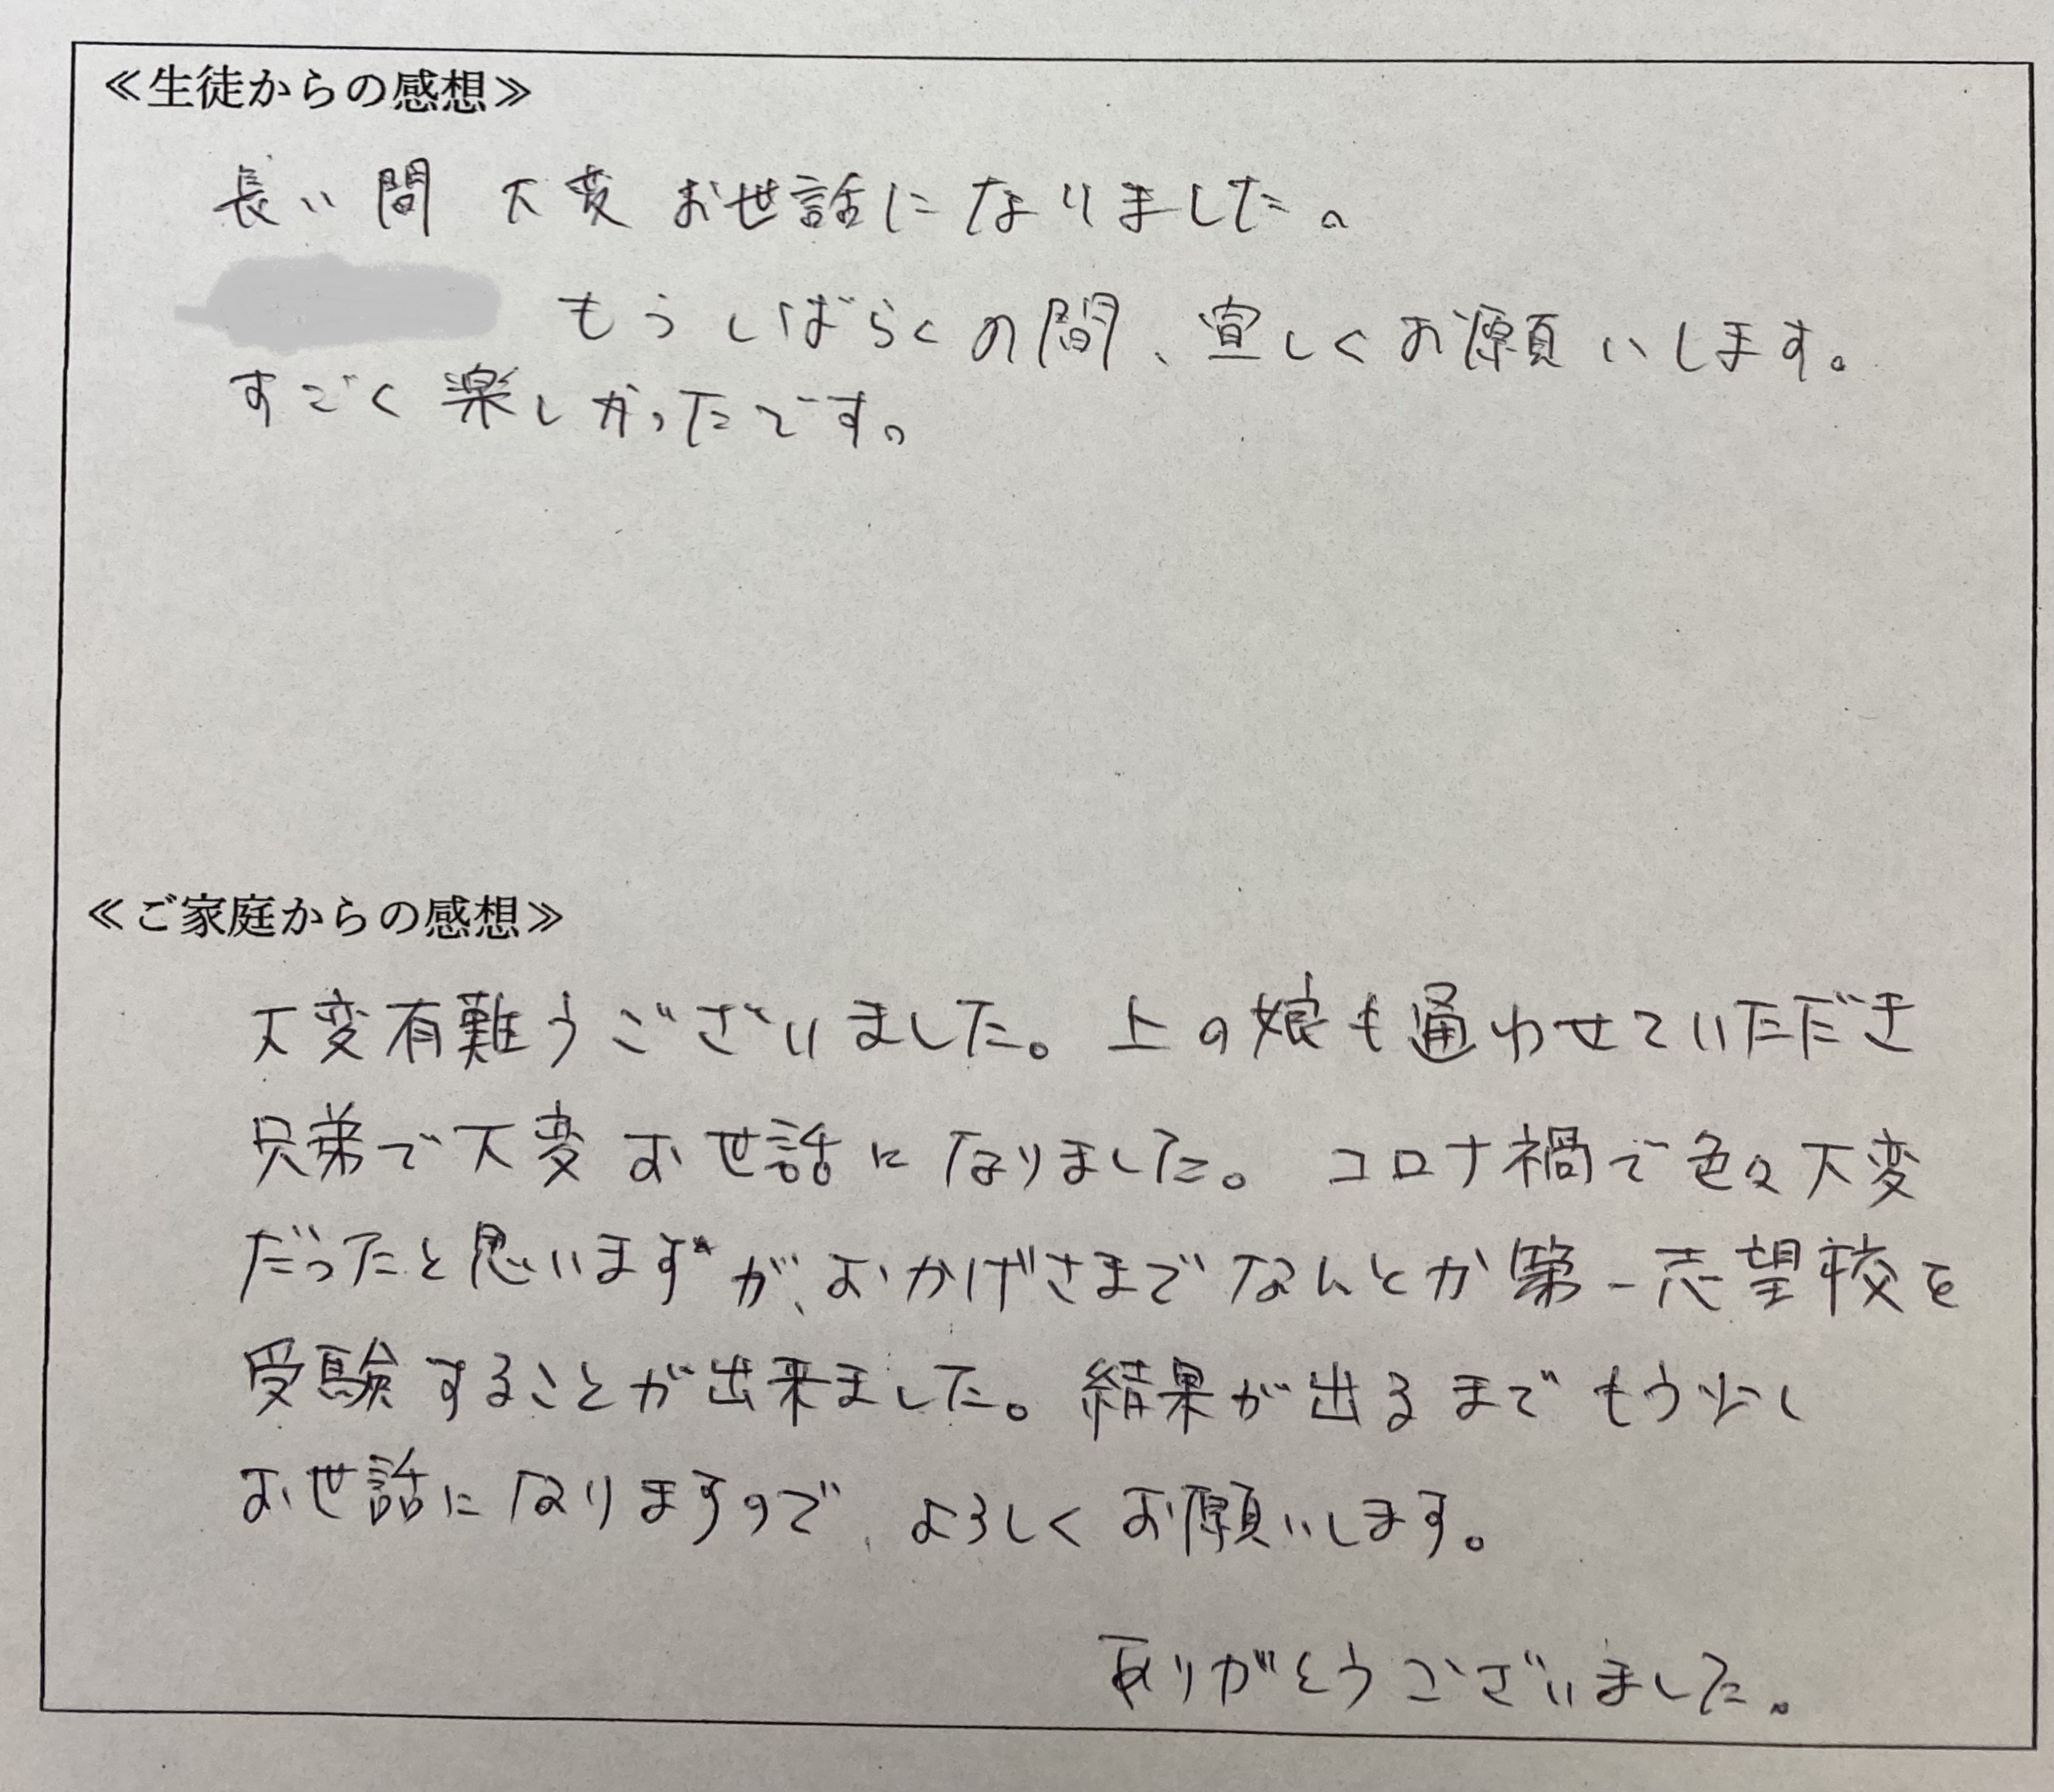 ≪生徒からの感想≫
長い間 大変 お世話になりました。
もうしばらくの間、宜しくお願いします。
すごく楽しかったです。
≪ご家庭からの感想≫
大変有難うございました。上の娘も通わせていただき
兄弟で大変お世話になりました。コロナ禍で色々大変
だったと思いますが、おかげさまでなんとか第一志望校を
受験することが出来ました。結果が出るまでもう少し
お世話になりますので、よろしくお願いします。
ありがとうございました。